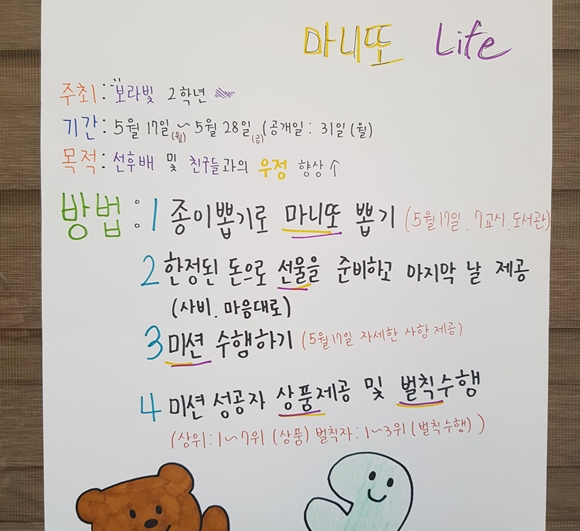 마니또 Life
주최: "보라빛 2학년
기간: 5월 17일(월) ~ 5월 28일(금) (공개일: 31일(월)
목적: 선후배 및 친구들과의 우정 향상 ↑
방법: 1 종이뽑기로 마니또 뽑기 (5월17일. 7교시. 도서관)
2 한정된 돈으로 선물을 준비하고 마지막 날 제공
(사비. 마음대로)
3 미션 수행하기 (5월17일 자세한 사항 제공)
4 미션 성공자 상품제공 및 벌칙수행
(상위: 1~7위 (상품) 벌칙자: 1~3위 (벌칙수행))